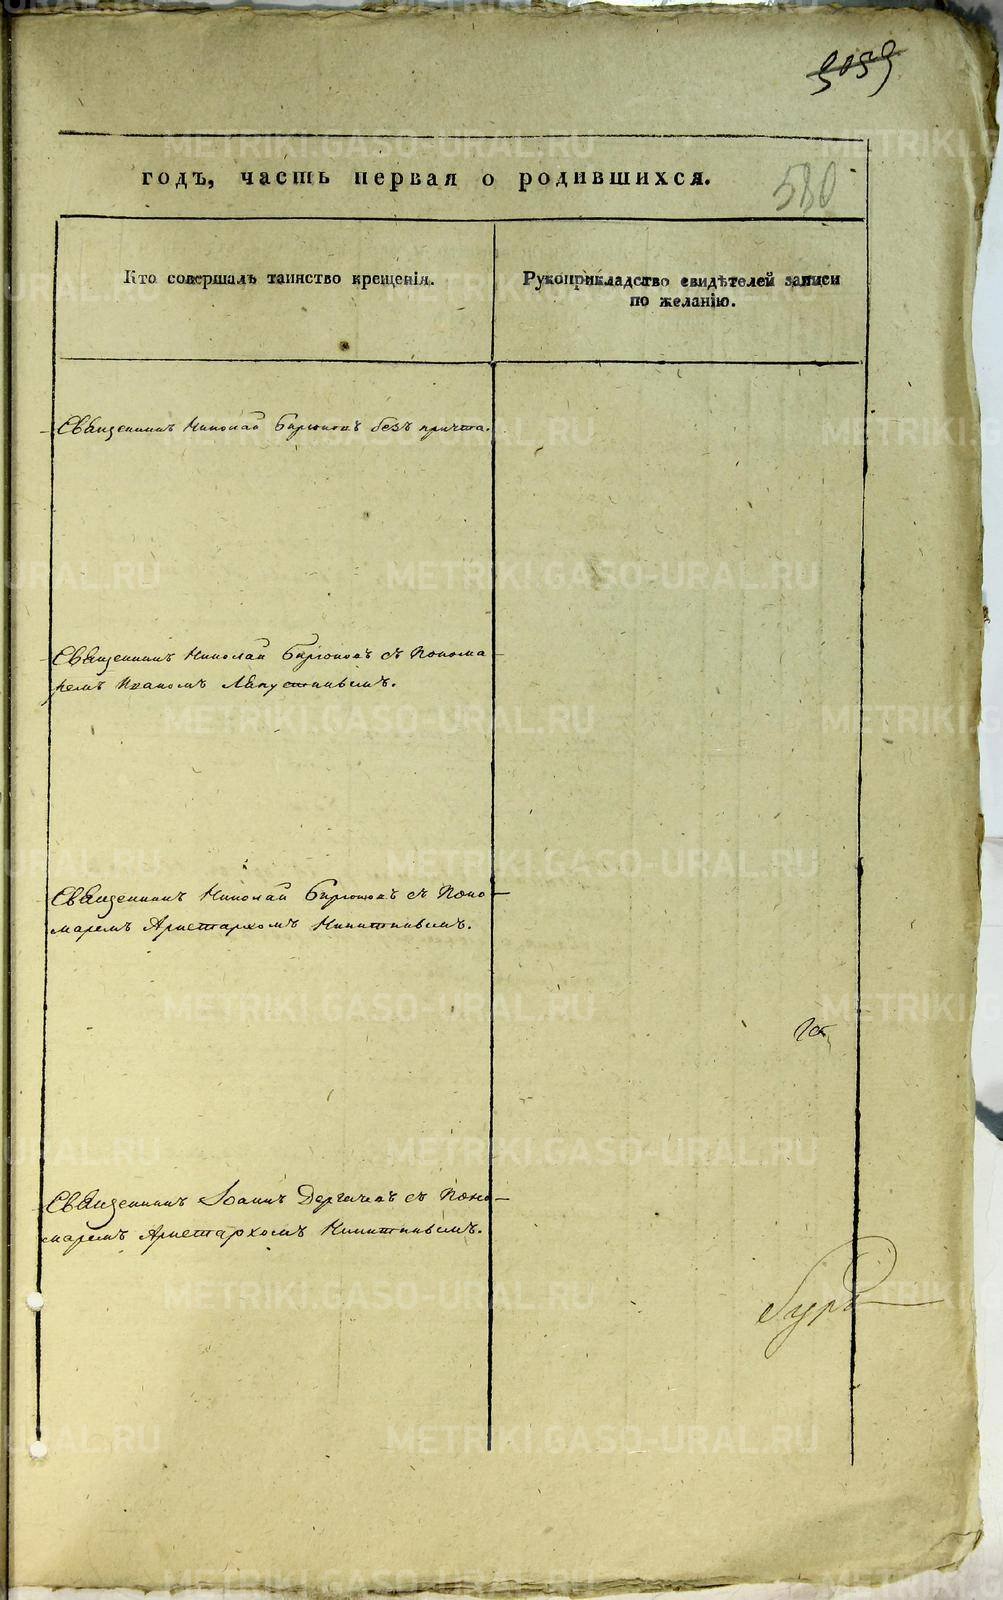 5059
годъ, часть первая о родившихся.
580
Кто совершалъ таинство крещенія.
Рукоприкладство свидѣтелей записи
по желанію.
Священникъ Николай Бирюковъ безъ причта.
Священникъ Николай Бирюковъ съ Понома
ремъ Иваномъ Ляпустинымъ.
Священникъ Николай Бирюковъ съ Поно-
маремъ Аристархомъ Никитинымъ.
Священникъ Іоаннъ Дергачевъ съ Поно-
маремъ Аристархомъ Никитинымъ.
METRIKI.GASO-URAL.RU